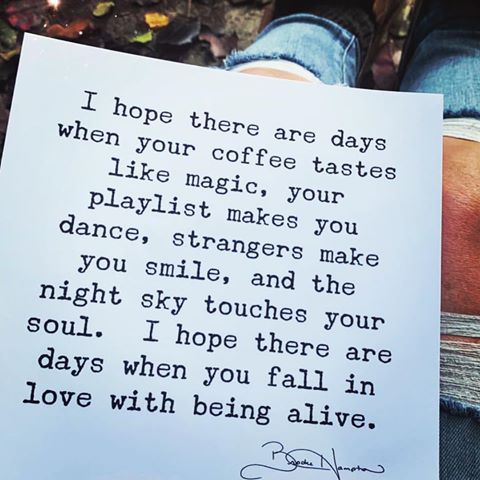 I hope there are days
when your coffee tastes
like magic, your
playlist makes you
dance, strangers make
you smile, and the
night sky touches your
soul. I hope there are
days when you fall in
love with being alive.
Brooke Hampton